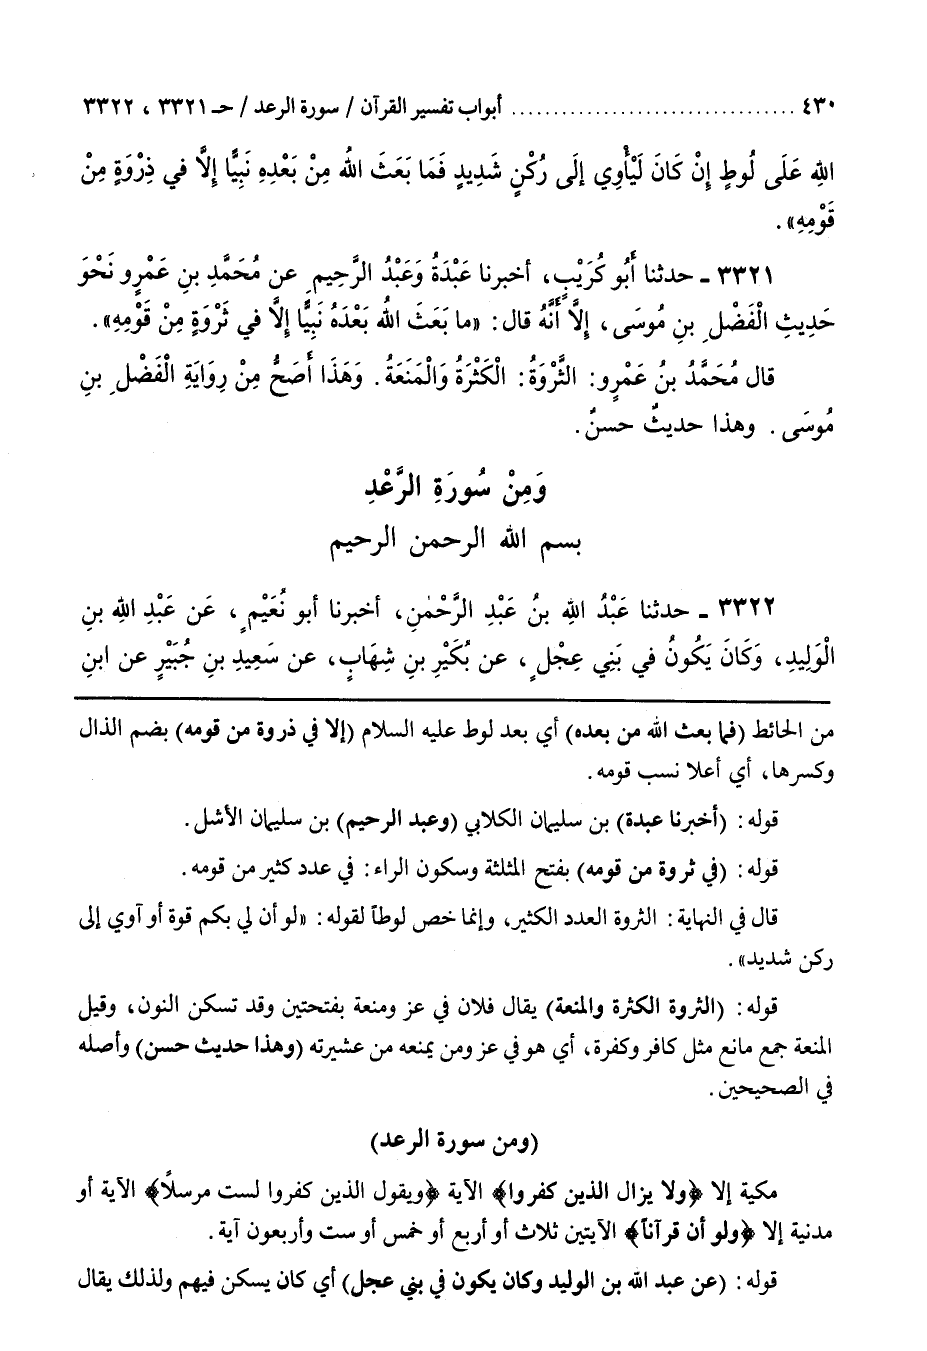 ٤٣٠ ................................ أبواب تفسير القرآن / سورة الرعد / حـ ٣٣٢١ ، ٣٣٢٢
اللهِ عَلَى لُوطٍ إنْ كَانَ لَيَأْوِي إلَى رُكْنٍ شَدِيدٍ فَمَا بَعَثَ اللهُ مِنْ بَعْدِهِ نَبِيًّا إلَّا في ذِرْوَةٍ مِنْ
قَوْمِهِ».
٣٣٢١ ـ حدثنا أَبُو كُرَيْبٍ، أخبرنا عَبْدَةُ وَعَبْدُ الرَّحِيمِ عن مُحَمَّدِ بنِ عَمْرٍو نَحْوَ
حَدِيثِ الْفَضْلِ بنِ مُوسَى، إلَّا أَنَّهُ قال: «ما بَعَثَ اللهُ بَعْدَهُ نَبِيًّا إلَّا في ثَرْوَةٍ مِنْ قَوْمِهِ».
قال مُحَمَّدُ بنُ عَمْرٍو: الثَّرْوَةُ: الْكَثْرَةُ وَالْمَنَعَةُ. وَهَذَا أَصَحُّ مِنْ رِوَايَةِ الْفَضْلِ بنِ
مُوسَى. وهذا حديثٌ حسنٌ.
وَمِنْ سُورَةِ الرَّعْدِ
بسم الله الرحمن الرحيم
٣٣٢٢ ـ حدثنا عَبْدُ اللهِ بنُ عَبْدِ الرَّحْمٰنِ، أخبرنا أبو نُعَيْمٍ، عَن عَبْدِ اللهِ بنِ
الْوَلِيدِ، وَكَانَ يَكُونُ في بَنِي عِجْلٍ، عن بُكَيْرِ بنِ شِهَابٍ، عن سَعِيدِ بنِ جُبَيْرٍ عن ابنِ
من الحائط (فما بعث الله من بعده) أي بعد لوط عليه السلام (إلا في ذروة من قومه) بضم الذال
وكسرها، أي أعلا نسب قومه.
قوله: (أخبرنا عبدة) بن سليمان الكلابي (وعبد الرحيم) بن سليمان الأشل.
قوله: (في ثروة من قومه) بفتح المثلثة وسكون الراء: في عدد كثير من قومه.
قال في النهاية: الثروة العدد الكثير، وإنما خص لوطاً لقوله: «لو أن لي بكم قوة أو آوي إلى
ركن شديد».
قوله: (الثروة الكثرة والمنعة) يقال فلان في عز ومنعة بفتحتين وقد تسكن النون، وقيل
المنعة جمع مانع مثل كافر وكفرة، أي هو في عز ومن يمنعه من عشيرته (وهذا حديث حسن) وأصله
في الصحيحين.
(ومن سورة الرعد)
مكية إلا ﴿ولا يزال الذين كفروا﴾ الآية ﴿ويقول الذين كفروا لست مرسلاً﴾ الآية أو
مدنية إلا ﴿ولو أن قرآناً﴾ الآيتين ثلاث أو أربع أو خمس أو ست وأربعون آية.
قوله: (عن عبد الله بن الوليد وكان يكون في بني عجل) أي كان يسكن فيهم ولذلك يقال